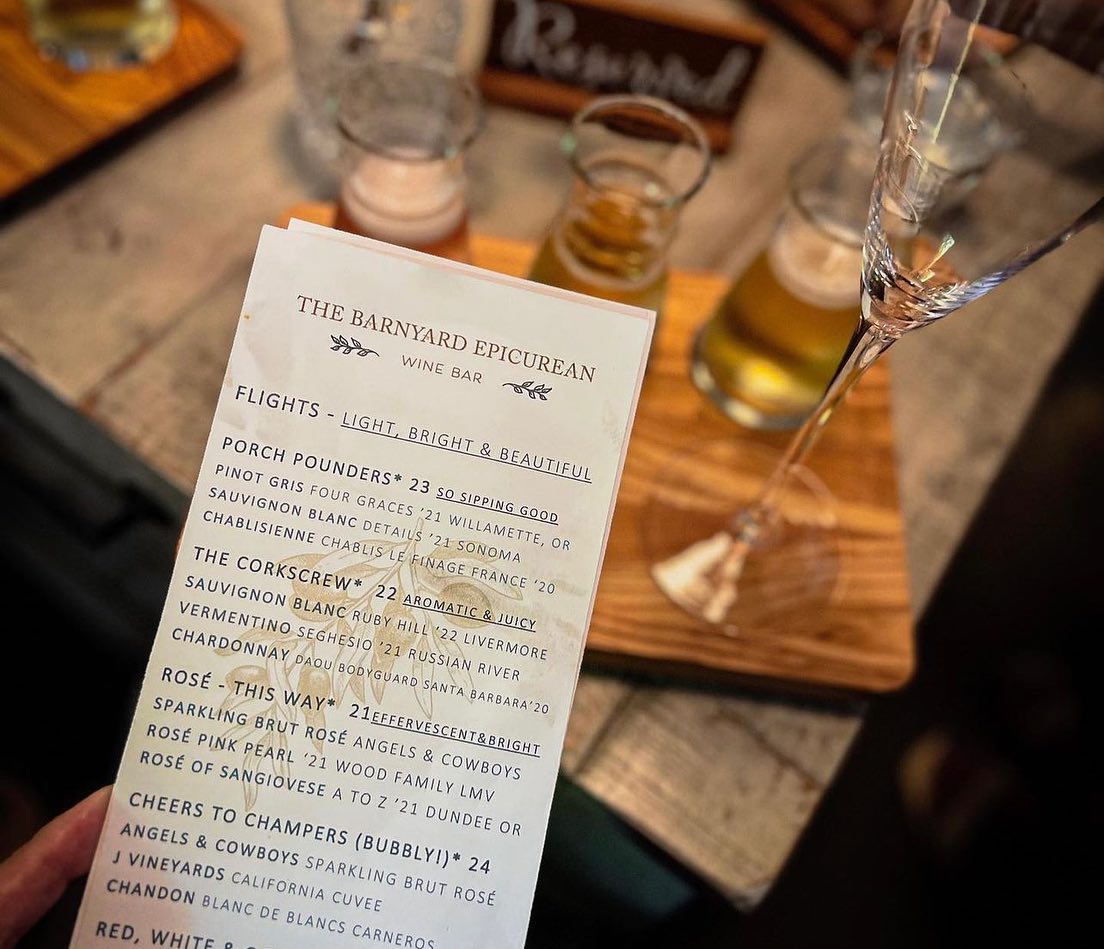 Reserved
THE BARNYARD EPICUREAN
WINE BAR
FLIGHTS - LIGHT, BRIGHT & BEAUTIFUL
PORCH POUNDERS* 23 SO SIPPING GOOD
PINOT GRIS FOUR GRACES '21 WILLAMETTE, OR
SAUVIGNON BLANC DETAILS '21 SONOMA
CHABLISIENNE CHABLIS LE FINAGE FRANCE '20
THE CORKSCREW* 22 AROMATIC & JUICY
SAUVIGNON BLANC RUBY HILL '22 LIVERMORE
VERMENTINO SEGHESIO '21 RUSSIAN RIVER
CHARDONNAY DAOU BODYGUARD SANTA BARBARA'20
ROSÉ - THIS WAY* 21EFFERVESCENT&BRIGHT
SPARKLING BRUT ROSÉ ANGELS & COWBOYS
ROSÉ PINK PEARL '21 WOOD FAMILY LMV
ROSÉ OF SANGIOVESE A TO Z '21 DUNDEE OR
CHEERS TO CHAMPERS (BUBBLY!)* 24
ANGELS & COWBOYS SPARKLING BRUT ROSÉ
J VINEYARDS CALIFORNIA CUVEE
CHANDON BLANC DE BLANCS CARNEROS
RED, WHITE &